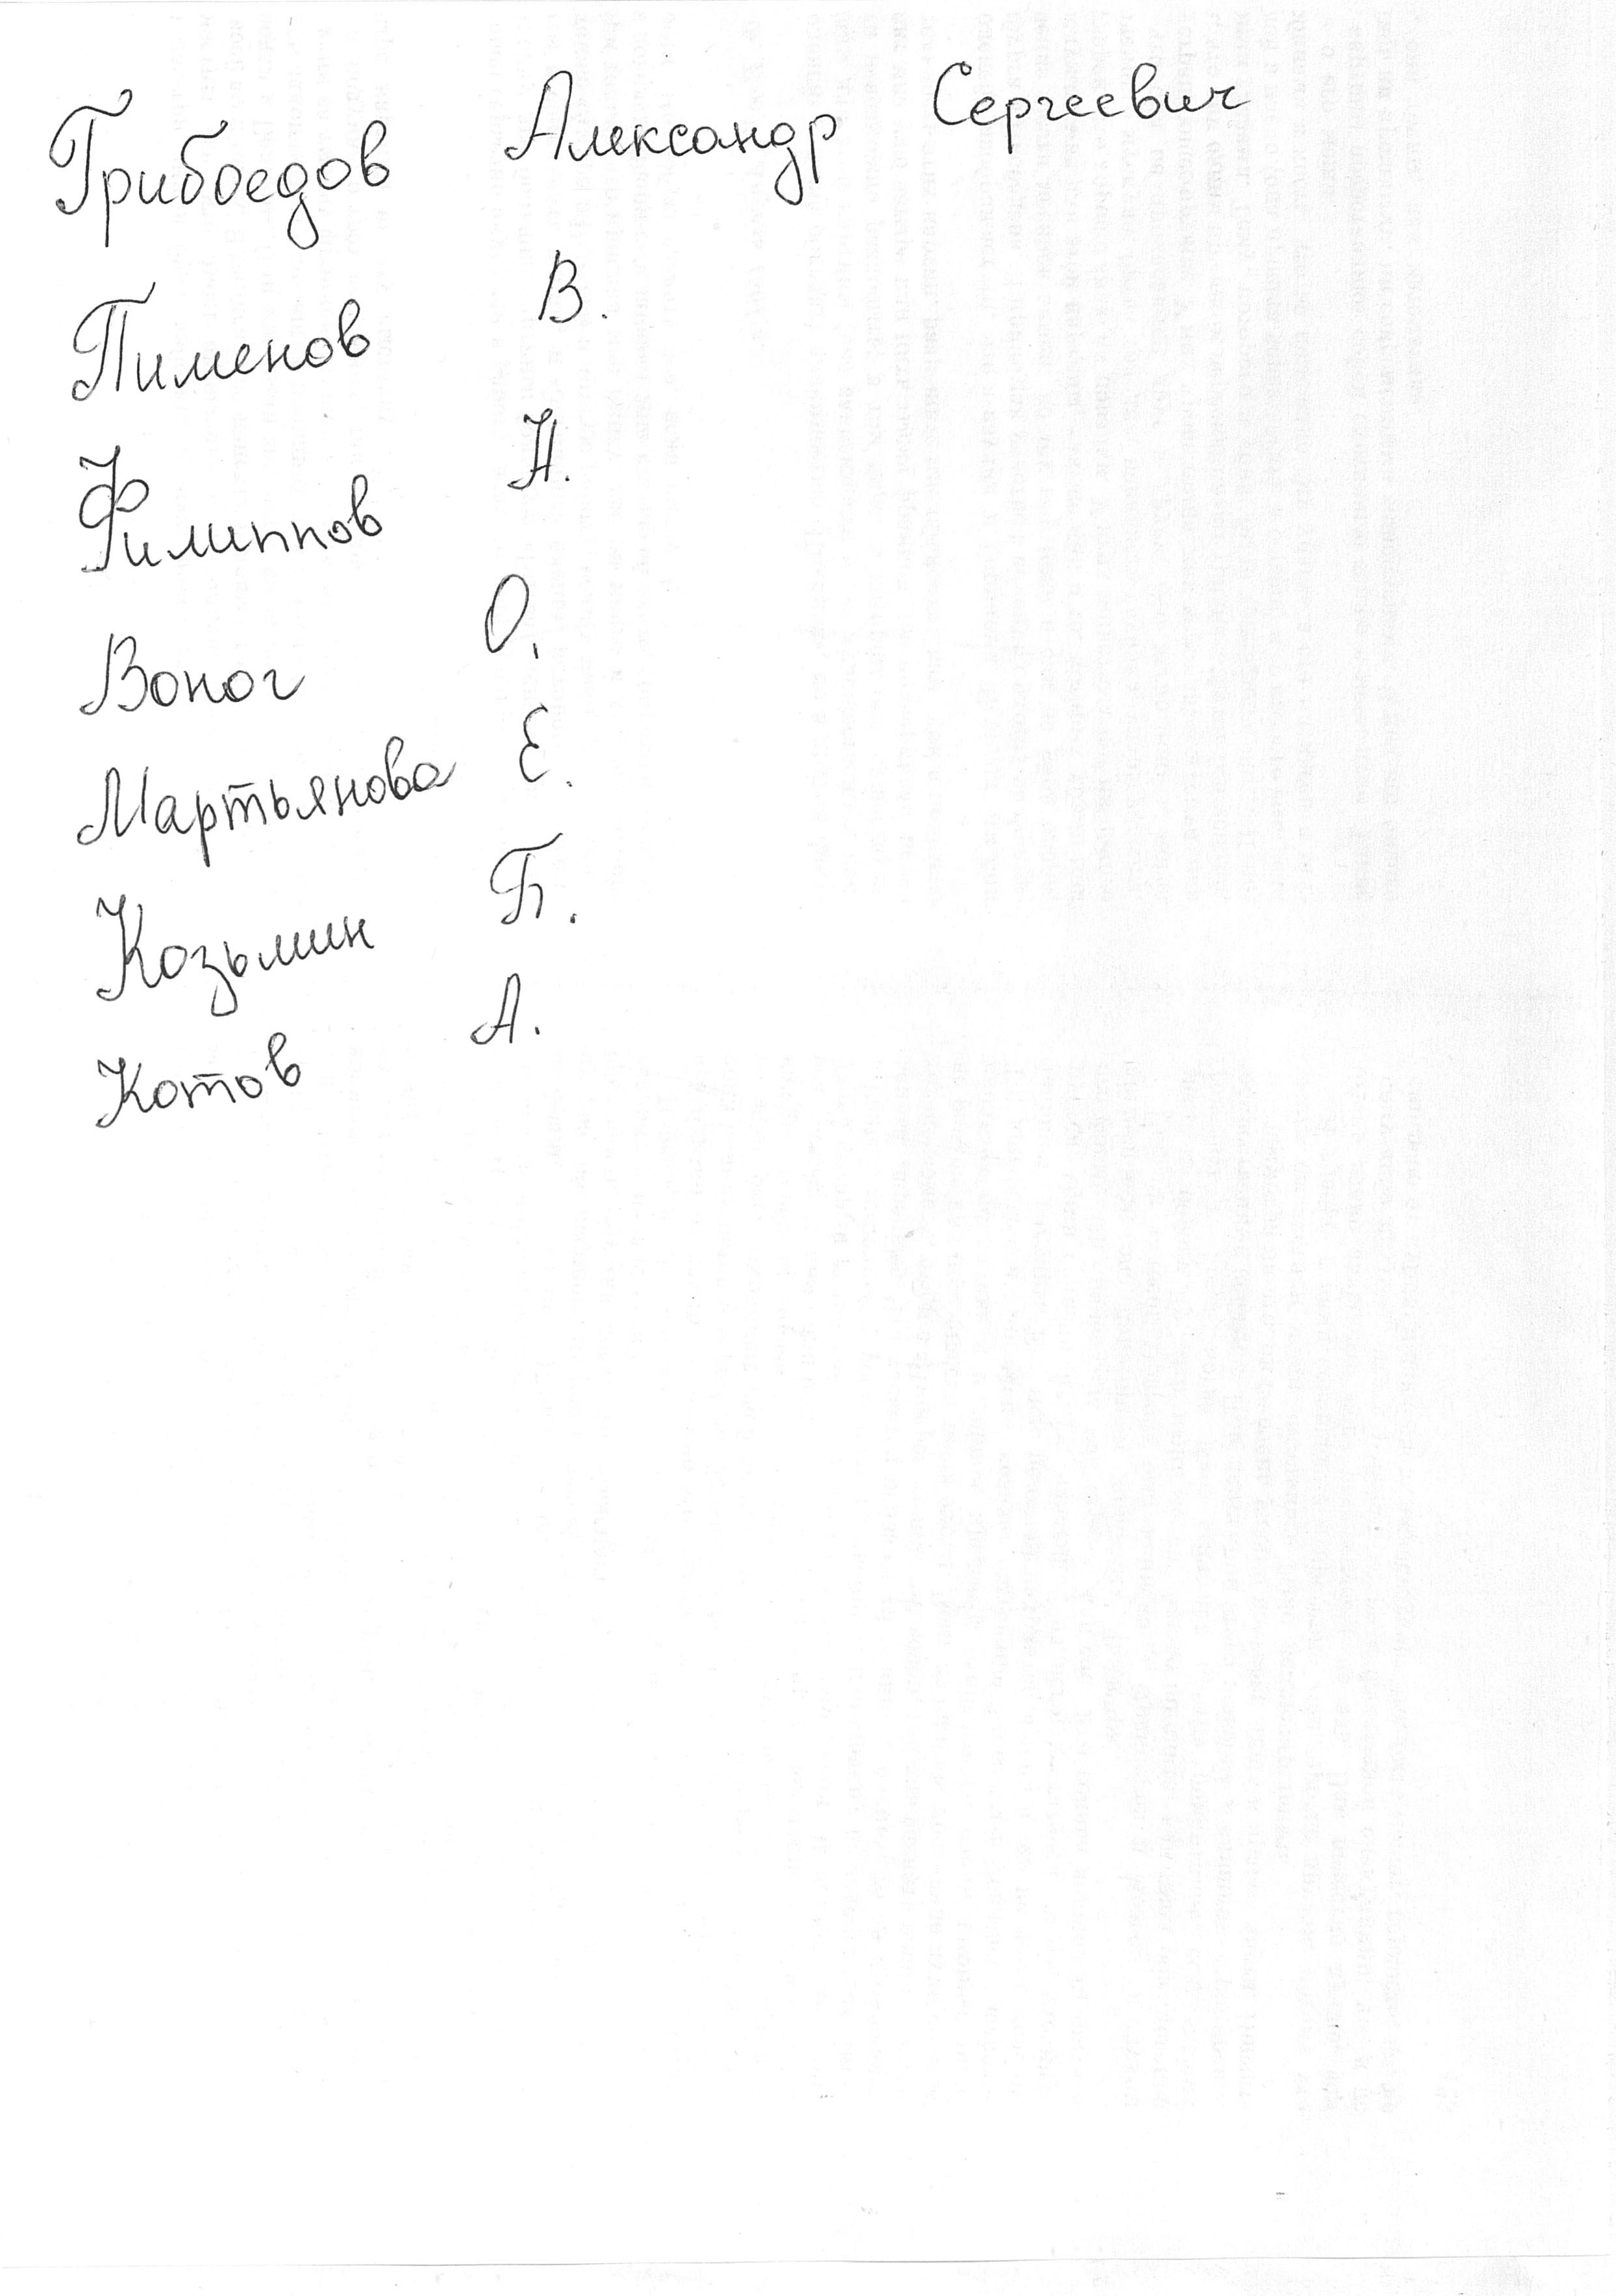 Грибоедов Александр Сергеевич
Пименов В.
Филиппов Н.
Воног О.
Мартьянова Е.
Козьмин Б.
Котов А.